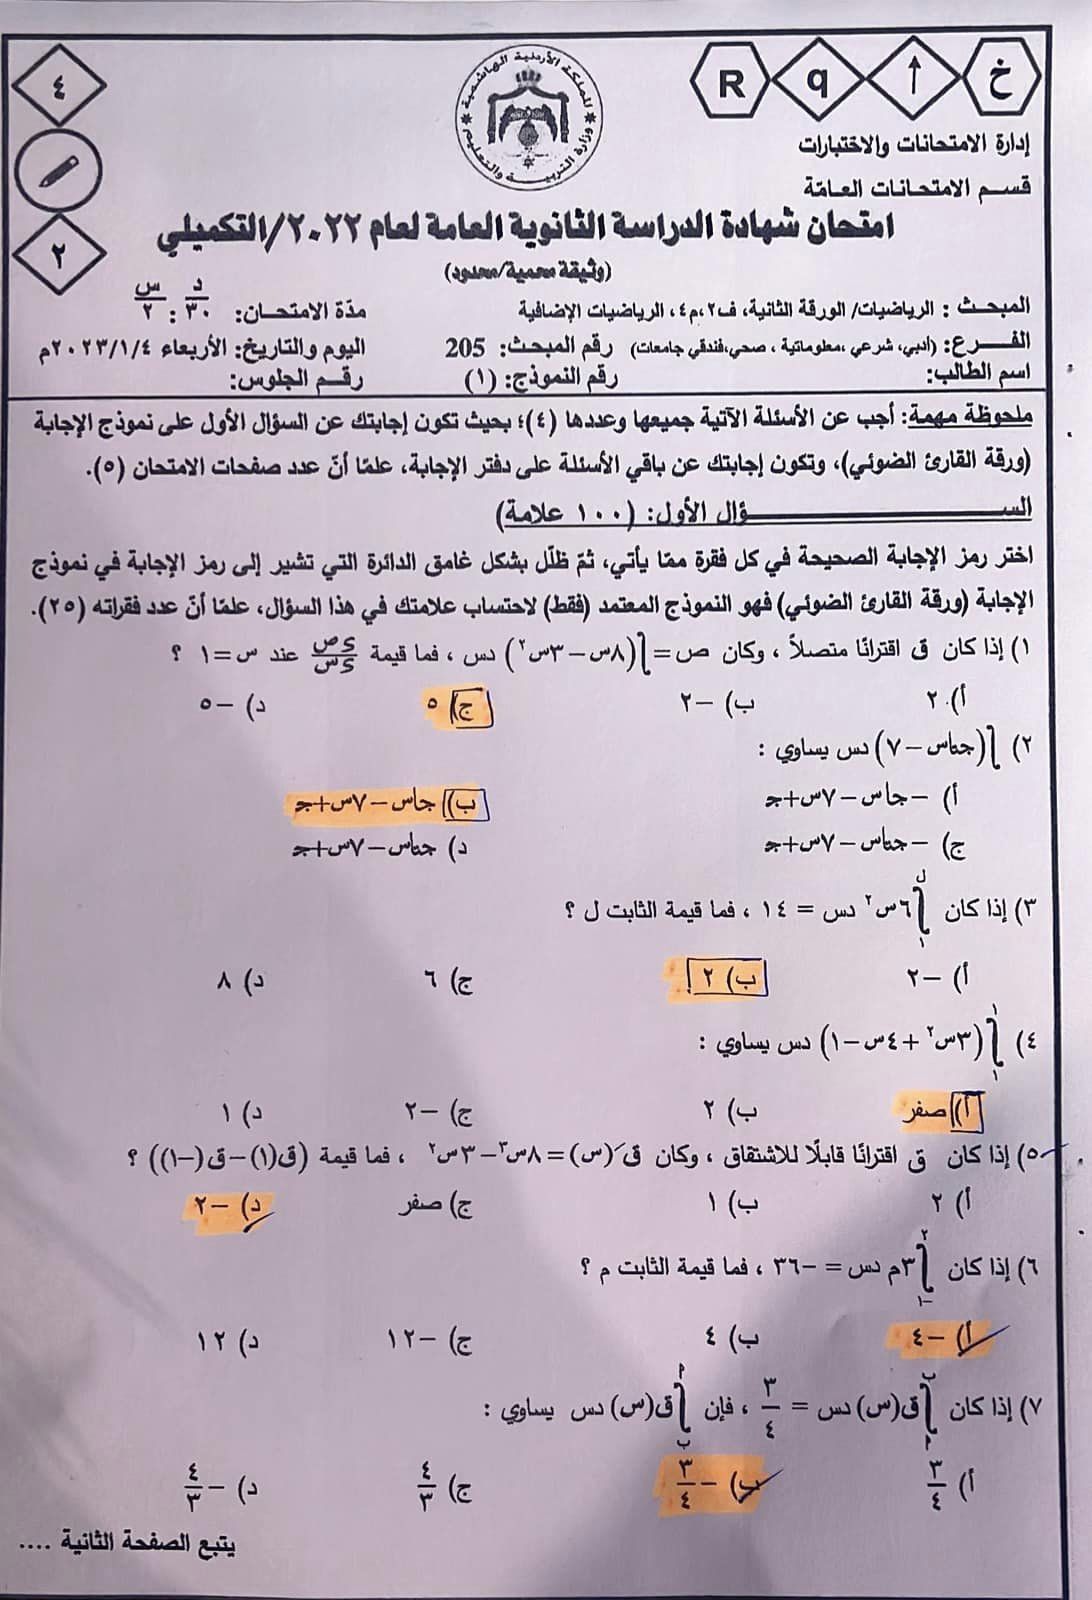 خ
↑
q
R
المملكة الأردنية الهاشمية
وزارة التربية والتعليم
٤
٢
إدارة الامتحانات والاختبارات
قسم الامتحانات العامّة
امتحان شهادة الدراسة الثانوية العامة لعام ٢٠٢٢/التكميلي
(وثيقة محمية/محدود)
المبحث : الرياضيات/ الورقة الثانية، ف٢ ،م٤ ، الرياضيات الإضافية
مدّة الامتحان: د ٣٠ : س ٢
الفرع: (أدبي، شرعي ،معلوماتية ، صحي،فندقي جامعات) رقم المبحث: 205
اليوم والتاريخ: الأربعاء ٢٠٢٣/١/٤م
اسم الطالب:
رقم النموذج: (١)
رقم الجلوس:
ملحوظة مهمة: أجب عن الأسئلة الآتية جميعها وعددها (٤)؛ بحيث تكون إجابتك عن السؤال الأول على نموذج الإجابة
(ورقة القارئ الضوئي)، وتكون إجابتك عن باقي الأسئلة على دفتر الإجابة، علمًا أنّ عدد صفحات الامتحان (٥).
الســـــــــــؤال الأول: (١٠٠ علامة)
اختر رمز الإجابة الصحيحة في كل فقرة ممّا يأتي، ثمّ ظلّل بشكل غامق الدائرة التي تشير إلى رمز الإجابة في نموذج
الإجابة (ورقة القارئ الضوئي) فهو النموذج المعتمد (فقط) لاحتساب علامتك في هذا السؤال، علمًا أنّ عدد فقراته (٢٥).
١) إذا كان ق اقترانًا متصلًا ، وكان ص = ∫(٨س – ٣س٢) دس ، فما قيمة دص/دس عند س=١ ؟
أ) ٢ ب) –٢ ج) ٥ د) –٥
٢) ∫(جتاس – ٧) دس يساوي :
أ) –جاس – ٧س+جـ ب) جاس – ٧س+جـ
ج) –جتاس – ٧س+جـ د) جتاس – ٧س+جـ
٣) إذا كان ∫١ل ٦س٢ دس = ١٤ ، فما قيمة الثابت ل ؟
أ) –٢ ب) ٢ ج) ٦ د) ٨
٤) ∫١١ (٣س٢ + ٤س – ١) دس يساوي :
أ) صفر ب) ٢ ج) –٢ د) ١
٥) إذا كان ق اقترانًا قابلًا للاشتقاق ، وكان قَ(س) = ٨س٣ – ٣س٢ ، فما قيمة (ق(١) – ق(–١)) ؟
أ) ٢ ب) ١ ج) صفر د) –٢
٦) إذا كان ∫–١٢ ٣م دس = –٣٦ ، فما قيمة الثابت م ؟
أ) –٤ ب) ٤ ج) –١٢ د) ١٢
٧) إذا كان ∫مب ق(س) دس = ٣/٤ ، فإن ∫بم ق(س) دس يساوي :
أ) ٣/٤ ب) –٣/٤ ج) ٤/٣ د) –٤/٣
يتبع الصفحة الثانية ....